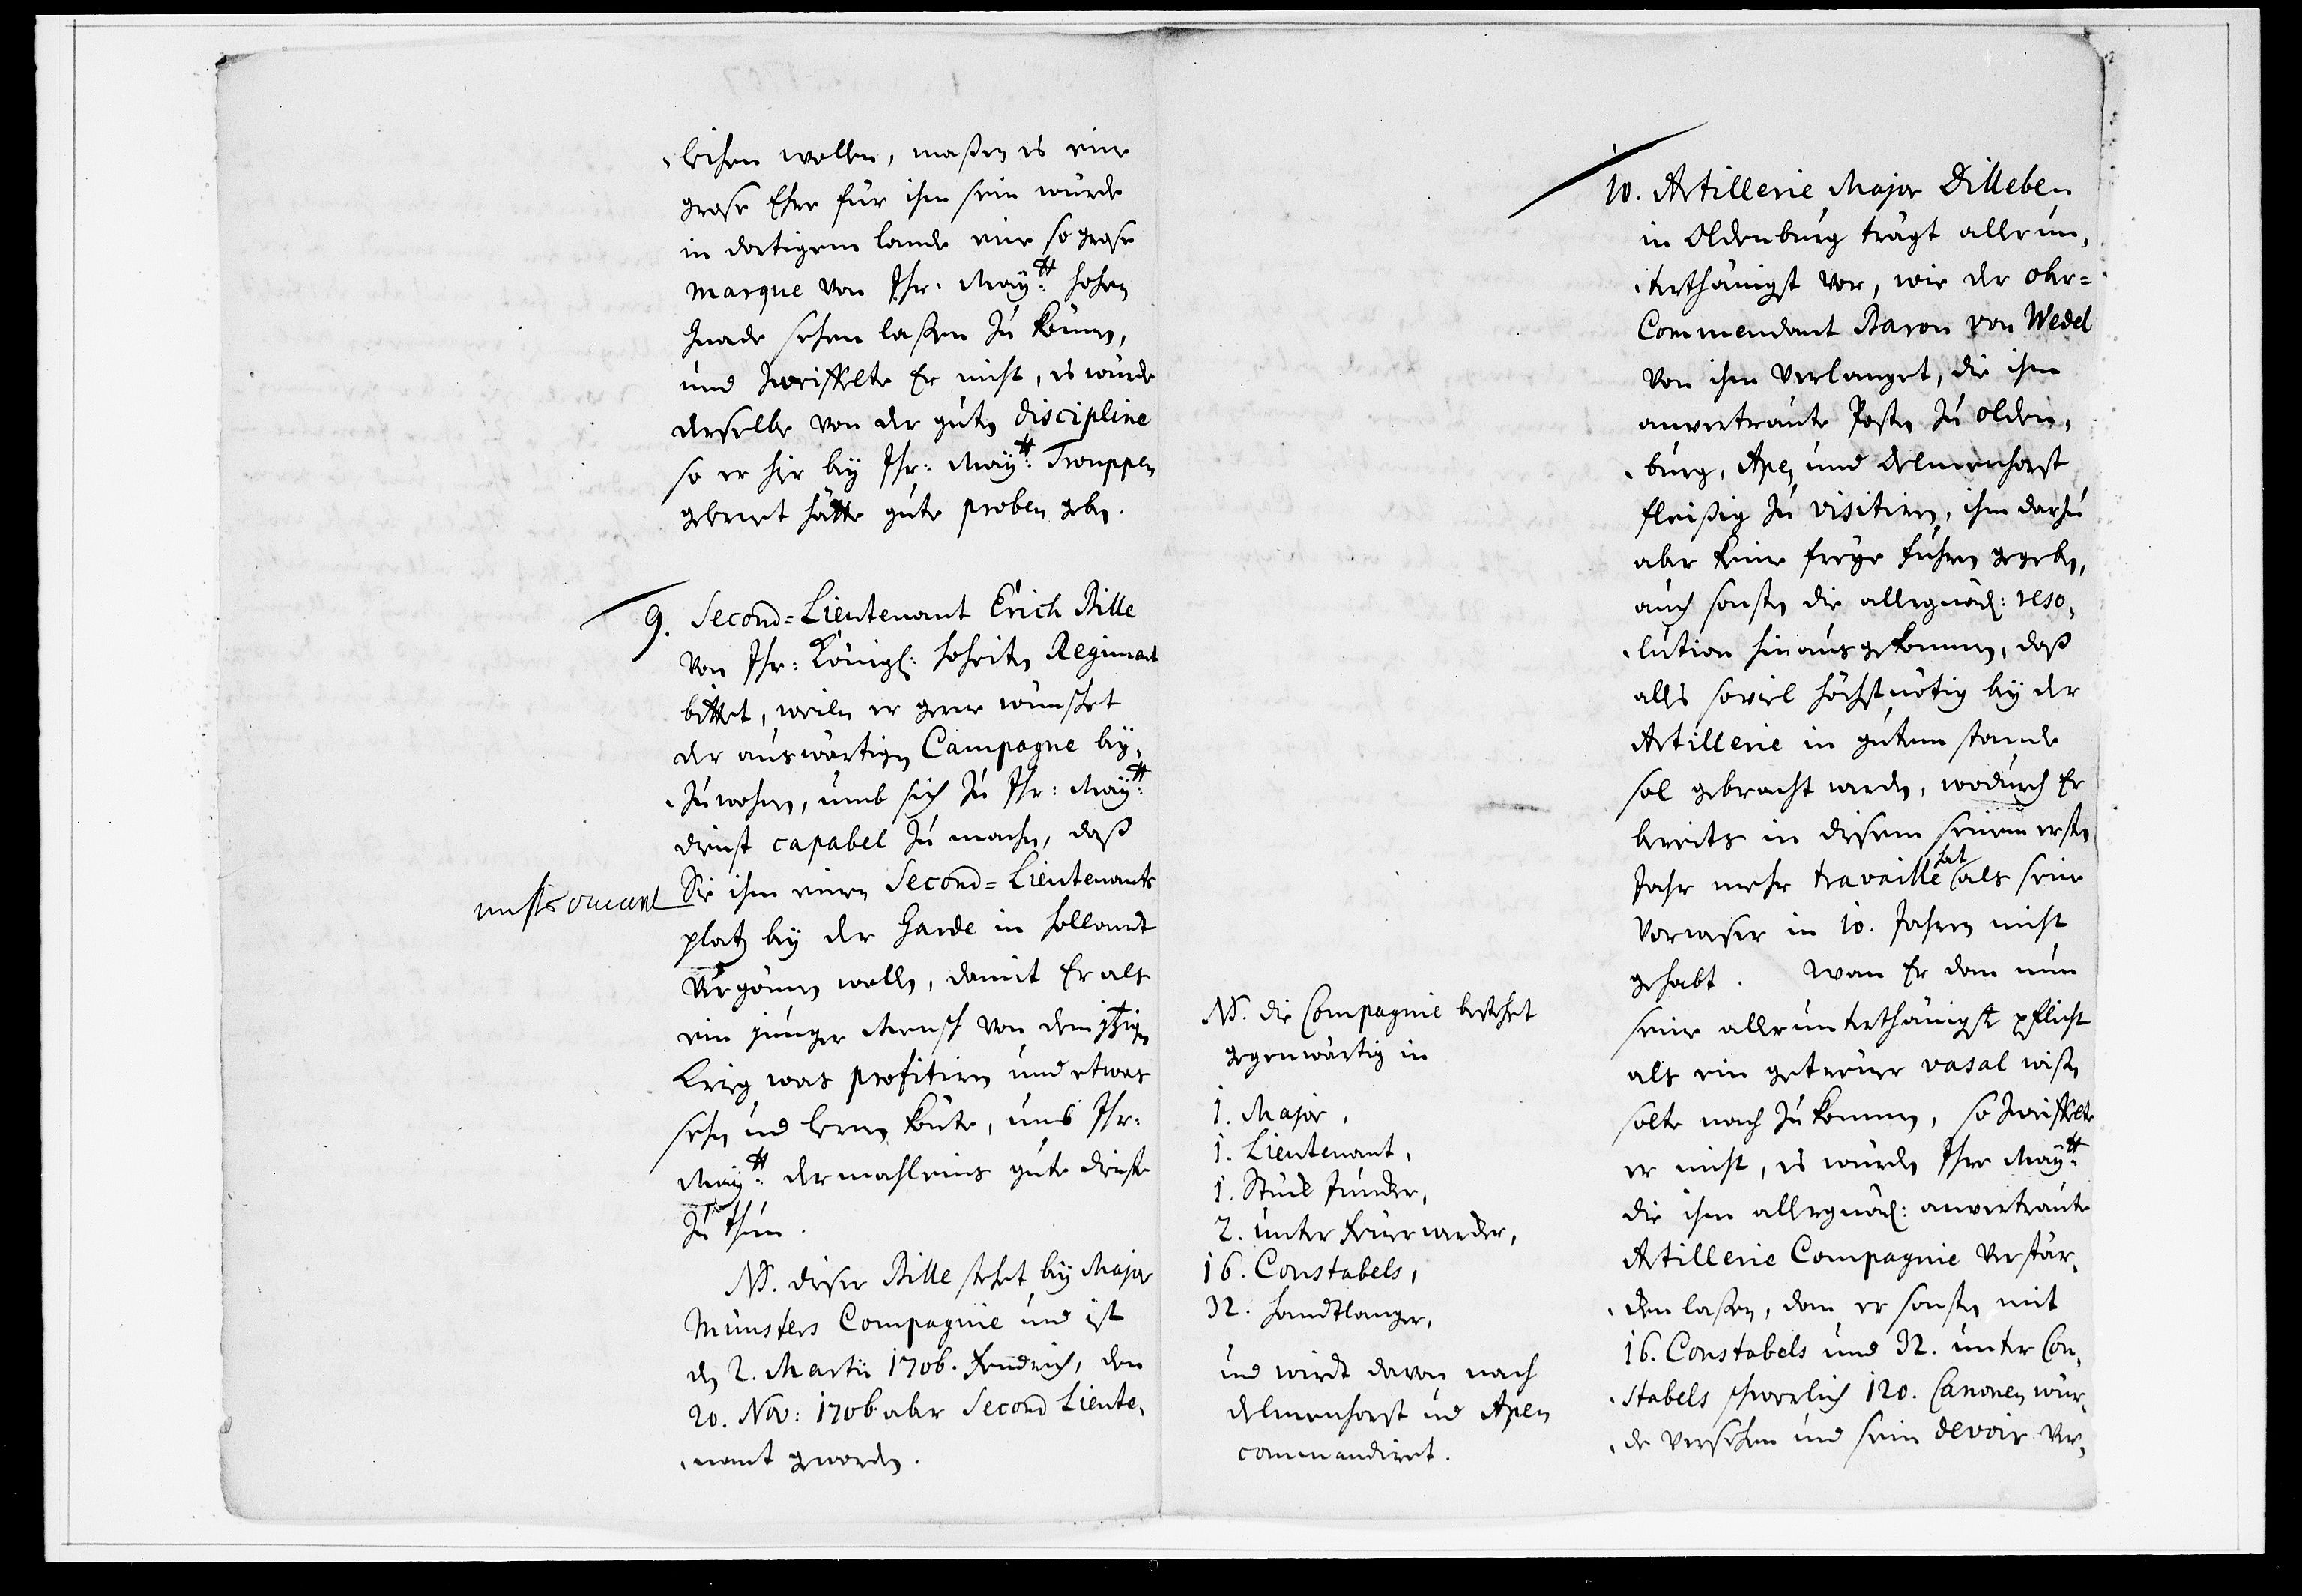 leihen wollen, maßen es eine
große Ehre für ihm sein würde
in dortigem lande eine so große
marque von Ihr: May:tt hohen
Gnade sehen laßen zu können,
und zweiffelte Er nicht, es würde
derselbe von der guten discipline
so er hir bey Ihr: May:tt Trouppen
gelernet hätte gute proben geben.
9. Second=Lieutenant Erich Bille
von Ihr: Königl: Hoheiten Regiment
bittet, weilen er gerne wünschet
der auswärtigen Campagne bey,
zuwohnen, umb sich zu Ihr: May:tt
dienst capabel zu machen, daß
Sie ihm einen Second=Lieutenants
platz bey der Garde in Hollandt
vergönnen wollen, damit Er als
ein junger Mensch von dem itzigen
Krieg was profitiren und etwas
sehen und lernen könte, umb Ihr:
May:tt dermahleins gute dienste
zu thun.
NB. dieser Bille stehet bey Major
Münsters Compagnie und ist
den 2. Martii 1706. Fendrich, den
20. Nov: 1706 aber Second Lieute,
nant geworden.
NB. die Compagnie bestehet
gegenwärtig in
1. Major,
1. Lieutenant,
1. Stück Juncker,
2. unter Feuerwercker,
16. Constabels,
32. Handtlanger,
und wirdt davon nach
Delmenhorst und Apen
commandiret.
10. Artillerie Major Dilleben
in Oldenburg trägt allerun,
terthänigst vor, wie der ober=
Commendant Baron von Wedel
von ihm verlanget, die ihm
anvertraute Posten zu Olden,
burg, Apen und Delmenhorst
fleißig zu visitiren, ihm darzu
aber keine freye fuhren gegeben,
auch sonsten die allergnäd: reso,
lution hinausgekommen, daß
alls soviel höchstnötig bey der
Artillerie in gutem stande
sol gebracht werden, wodurch Er
bereits in diesem seinem ersten
Jahr mehr travaille hat als seine
Vorweser in 10. Jahren nicht
gehabt. Wan Er dan nun
seine allerunterthänigste pflicht
als ein getreuer vasal wißen
solte nach zu kommen, so zweiffelte
er nicht, es würden Ihre May:tt
die ihm allergnäd: anvertraute
Artillerie Compagnie verstär,
cken laßen, dan er sonsten mit
16. Constabels und 32. unter Con,
stabels schwerlich 120. Canonen wür,
de versehen und sein devoir ver,